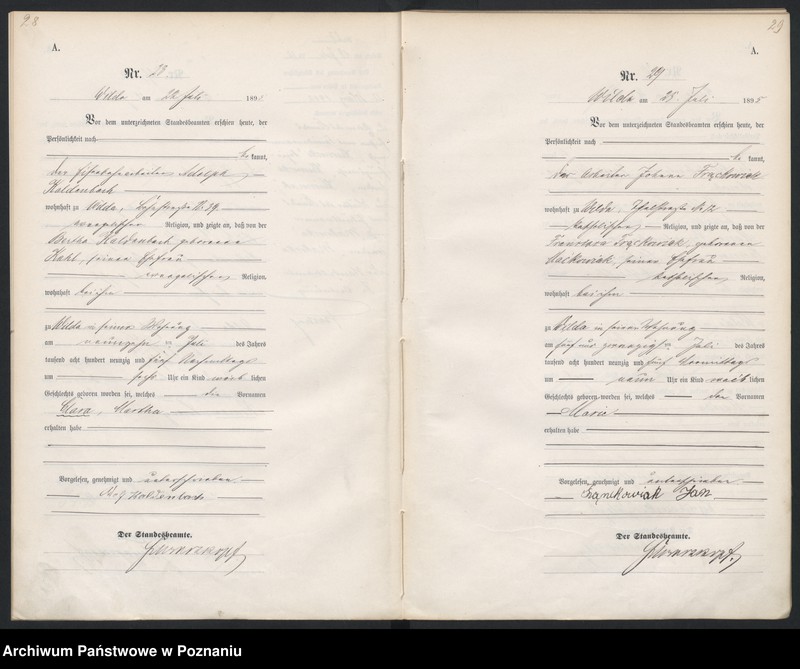 28
A.
Nr. 28
Wilda am 22. Juli 1895
Vor dem unterzeichneten Standesbeamten erschien heute, der
Persönlichkeit nach
be kannt,
der Adolph
Kaldenbach
wohnhaft zu Wilda, No. 39
evangelischer Religion, und zeigte an, daß von der
Bertha Kaldenbach geborenen
Kahl, seiner Ehefrau
evangelischer Religion,
wohnhaft bei ihm
zu Wilda in seiner Wohnung
am Juli des Jahres
tausend acht hundert neunzig und fünf Nachmittags
um sechs Uhr ein Kind weib lichen
Geschlechts geboren worden sei, welches die Vornamen
Clara, Martha
erhalten habe
Vorgelesen, genehmigt und unterschrieben
Kaldenbach
Der Standesbeamte.
29
A.
Nr. 29
Wilda am 25. Juli 1895
Vor dem unterzeichneten Standesbeamten erschien heute, der
Persönlichkeit nach
be kannt,
der Arbeiter Johann Frąckowiak
wohnhaft zu Wilda, No 12
katholischer Religion, und zeigte an, daß von der
Franziska Frąckowiak, geborenen
Maćkowiak, seiner Ehefrau
katholischer Religion,
wohnhaft bei ihm
zu Wilda in seiner Wohnung
am Juli des Jahres
tausend acht hundert neunzig und fünf Vormittags
um neun Uhr ein Kind weib lichen
Geschlechts geboren worden sei, welches den Vornamen
Marie
erhalten habe
Vorgelesen, genehmigt und unterschrieben
Jan
Der Standesbeamte.
Archiwum Państwowe w Poznaniu